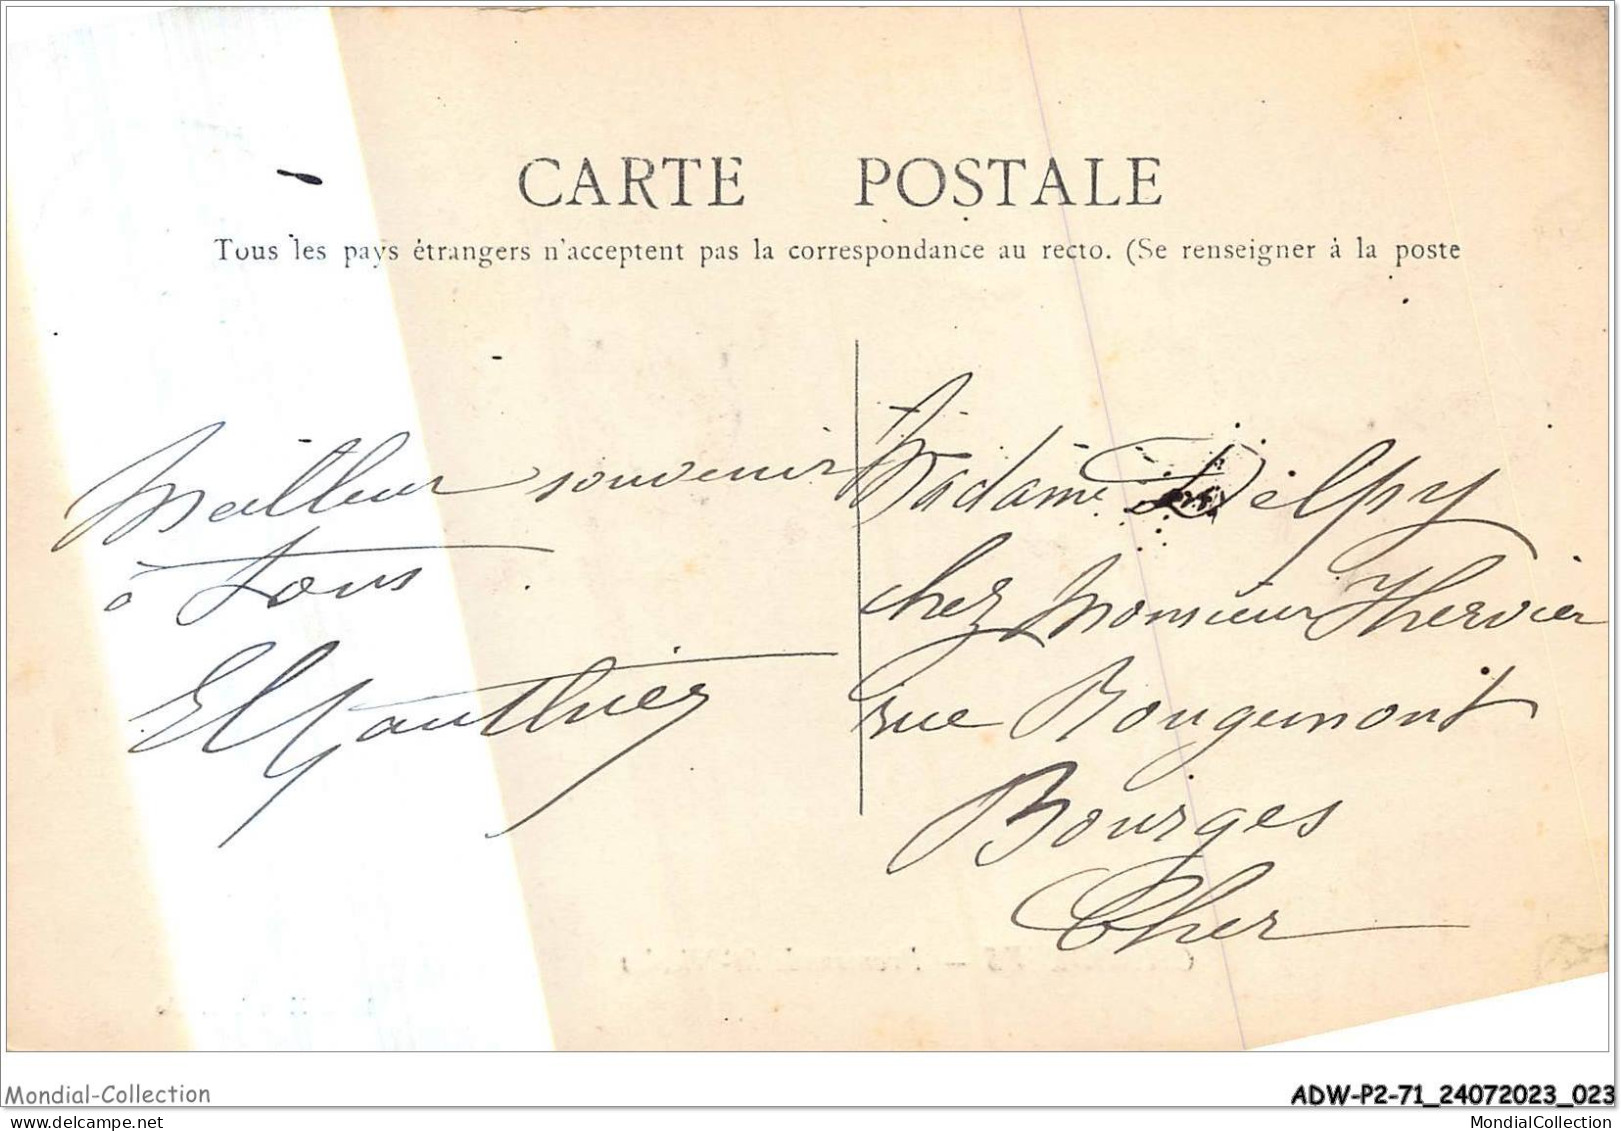 CARTE POSTALE
Tous les pays étrangers n'acceptent pas la correspondance au recto. (Se renseigner à la poste
Meilleur souvenir
à tous
El Gauthier
Madame Delpy
chez Monsieur Thervier
rue Bougemont
Bourges
Cher
Mondial-Collection
ADW-P2-71_24072023_023
MondialCollection
MondialCollection